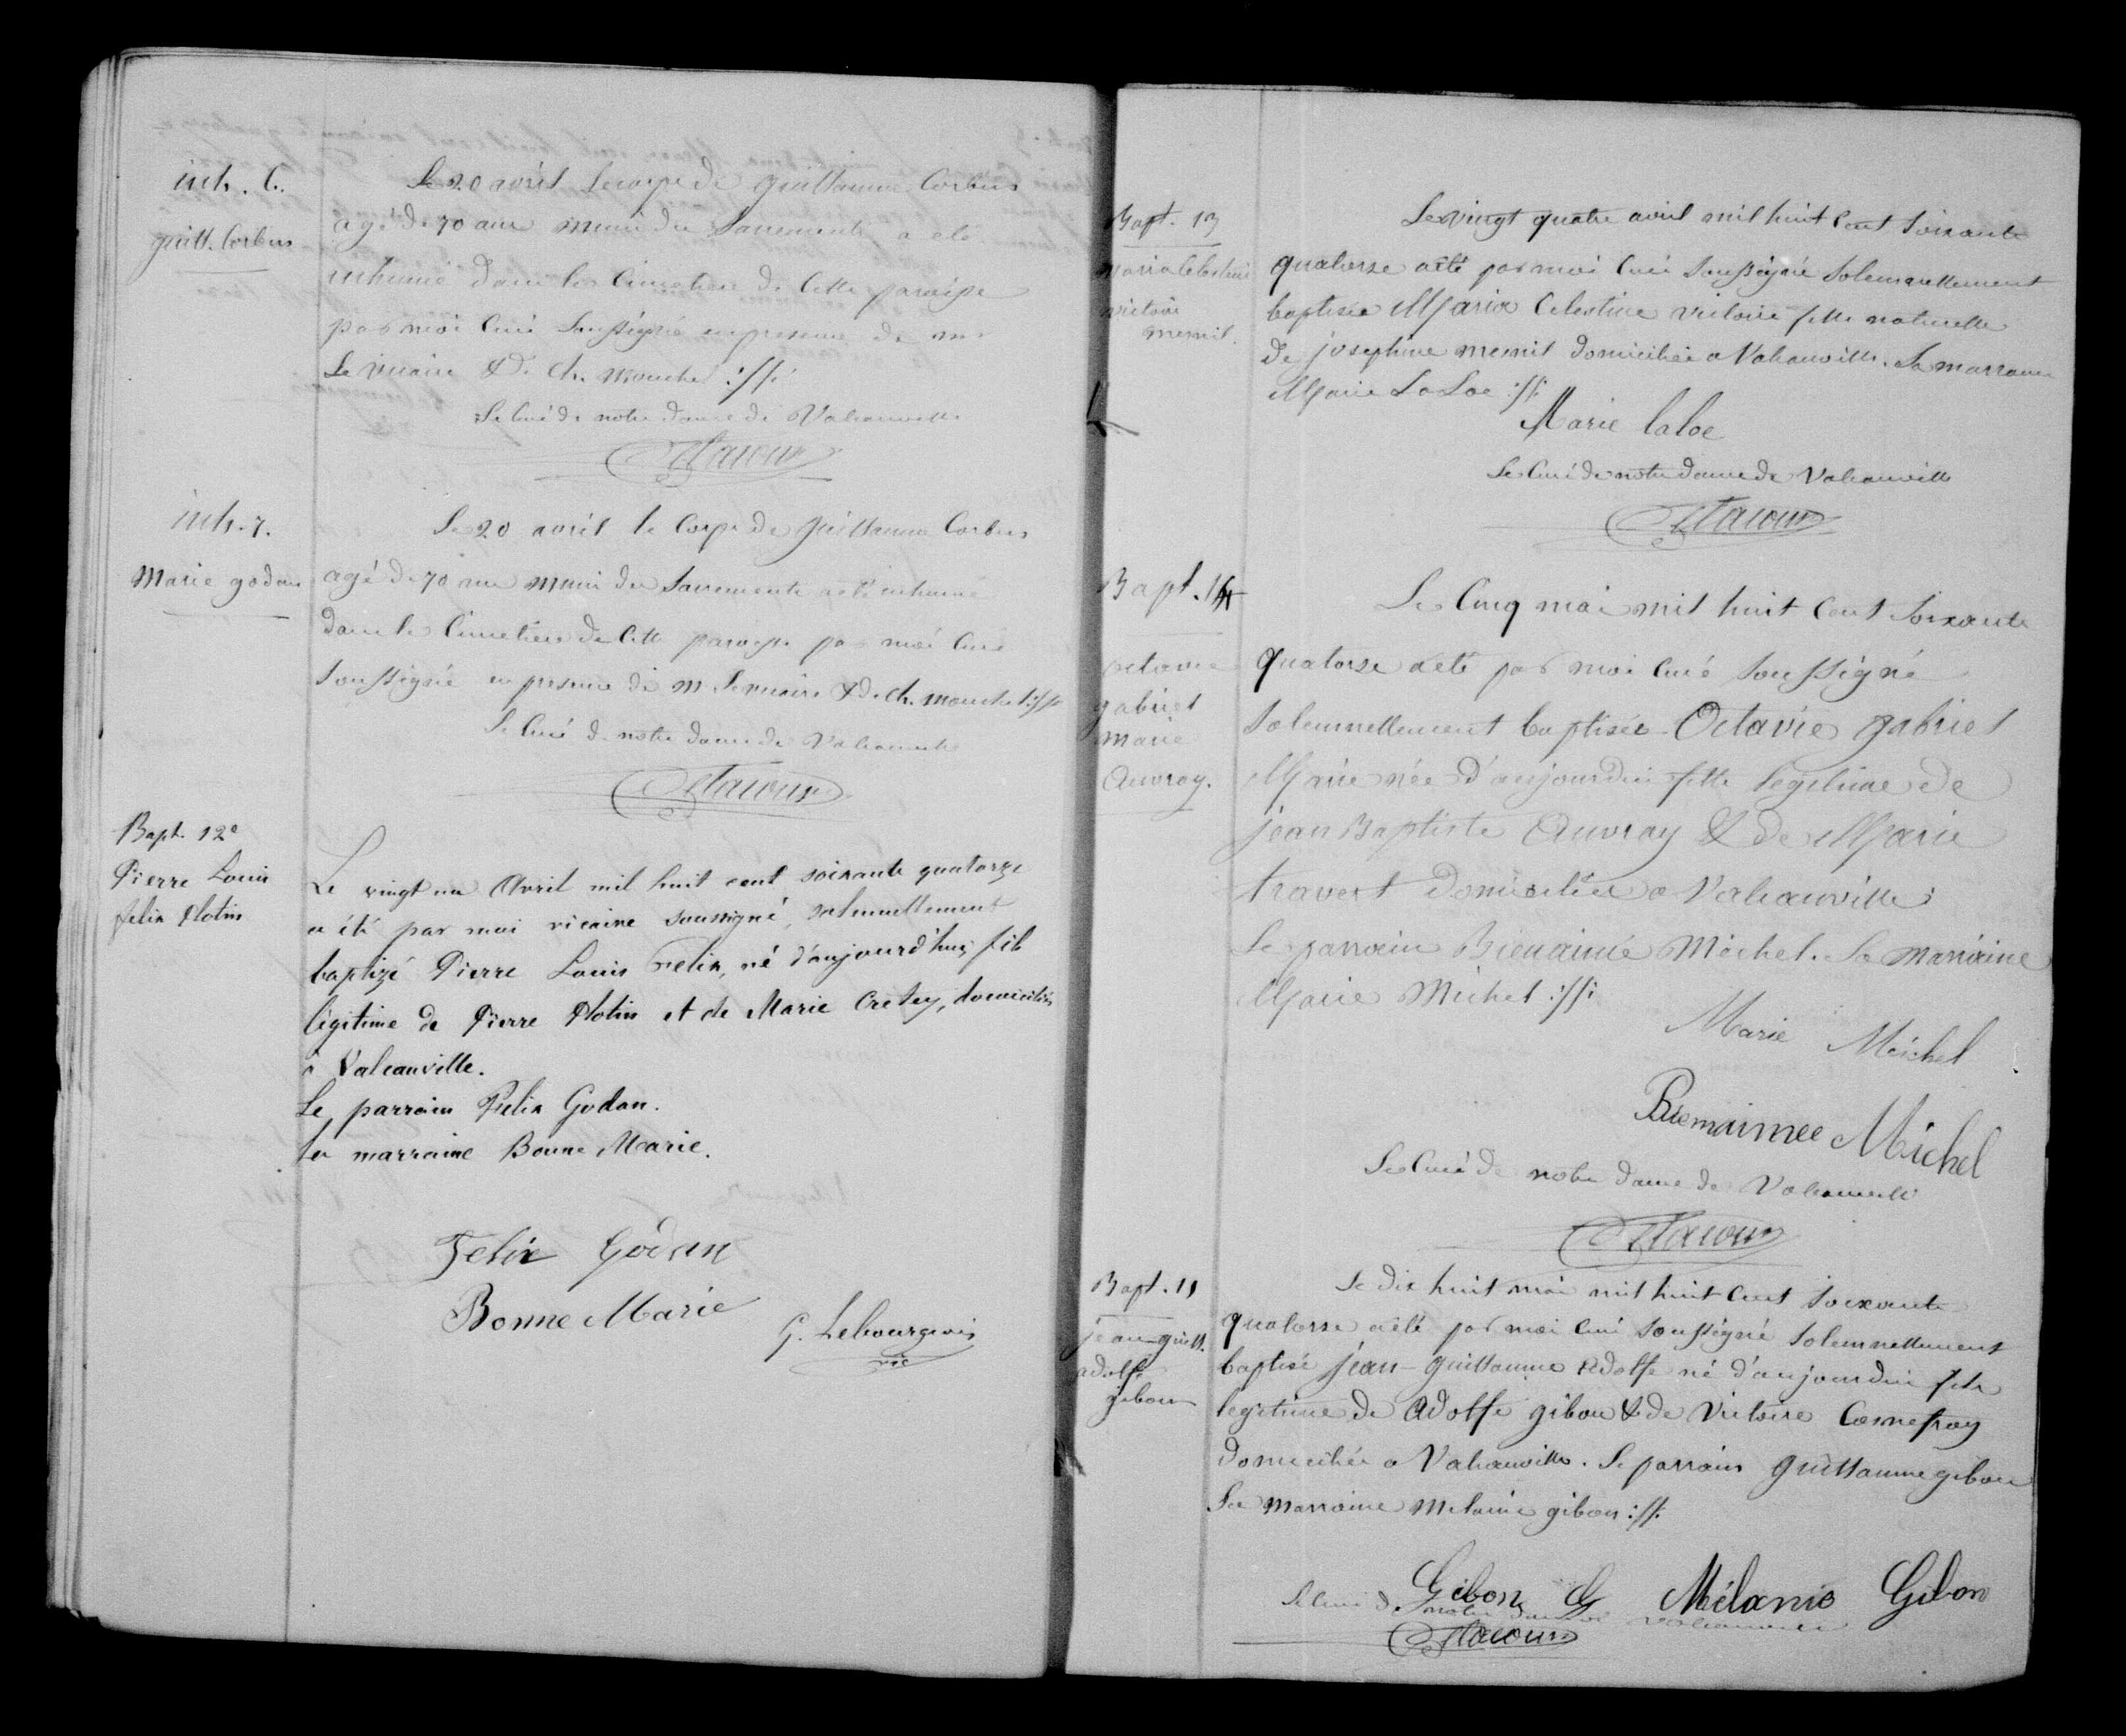 inh. 6.
guill. Corbin
Le 20 avril le corps de guillaume Corbin
agé de 70 ans muni des Sacrements a eté
inhumé dans le Cimetiere de Cette paroisse
par moi Curé Soussigné en presence de mr
Le vicaire & de ch. mouchel :/:
Le Curé de notre dame de Valcanville
inh. 7.
Marie godan
Le 20 avril le Corps de guillaume Corbin
agé de 70 ans muni des Sacrements a eté inhumé
dans le Cimetiere de Cette paroisse par moi Curé
Soussigné en presence de mr Le vicaire & de ch. mouchel :/:
Le Curé de notre dame de Valcanville
Bapt. 12e
Pierre Louis
felix Plotin
Le vingt un Avril mil huit cent soixante quatorze
a été par moi vicaire soussigné, solennellement
baptizé Pierre Louis Felix, né d'aujourd'hui, fils
légitime de Pierre Plotin et de Marie Cretey, domiciliés
à Valcanville.
Le parrain Felix Godan.
La marraine Bonne Marie.
Felix Godan
Bonne Marie
G. Lebourgeois
vic
Bapt. 13
maria Celestine
victoire
mesnil.
Le vingt quatre avril mil huit Cent Soixante
quatorse a été par moi Curé Soussigné Solemnellement
baptisée Maria Celestine victoire fille naturelle
de josephine mesnil domiciliée a Valcanville. La marraine
Marie LaLoe :/:
Marie laloe
Le Curé de notre dame de Valcanville
Bapt. 14
octavie
gabriel
marie
Auvray.
Le Cinq mai mil huit Cent Soixante
quatorse a été par moi Curé Soussigné
Solemnellement baptisée Octavie gabriel
Marie née d'aujourdui fille legitime de
jean Baptiste Auvray & de Marie
travert domiciliés a Valcanville :
Le parrain Bienaimé Michel. La marraine
Marie Michel :/:
Marie Michel
Bienaimee Michel
Le Curé de notre dame de Valcanville
Bapt. 15
jean-guill.
adolfe
gibon
Le dix huit mai mil huit Cent Soixante
quatorse a été par moi Curé Soussigné Solemnellement
baptisé jean-guillaume Adolfe né d'aujourdui fils
legitime de Adolfe gibon & de Victoire Cosnefroy
domiciliés a Valcanville. Le parrain guillaume gibon
La marraine melanie gibon :/:
Gibon G Mélanie Gibon
Le Curé de notre dame de Valcanville